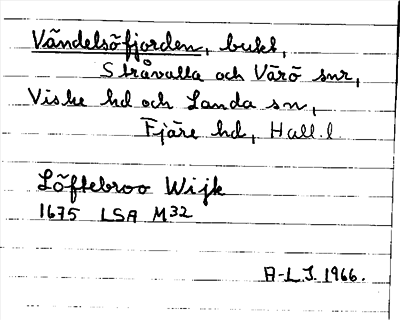 Vändelsöfjorden, bukt,
Stråvalla och Värö snr,
Viske hd och Landa sn,
Fjäre hd, Hall.l.
Löftebroo Wijk
1675 LSA M32
A-L.J. 1966.